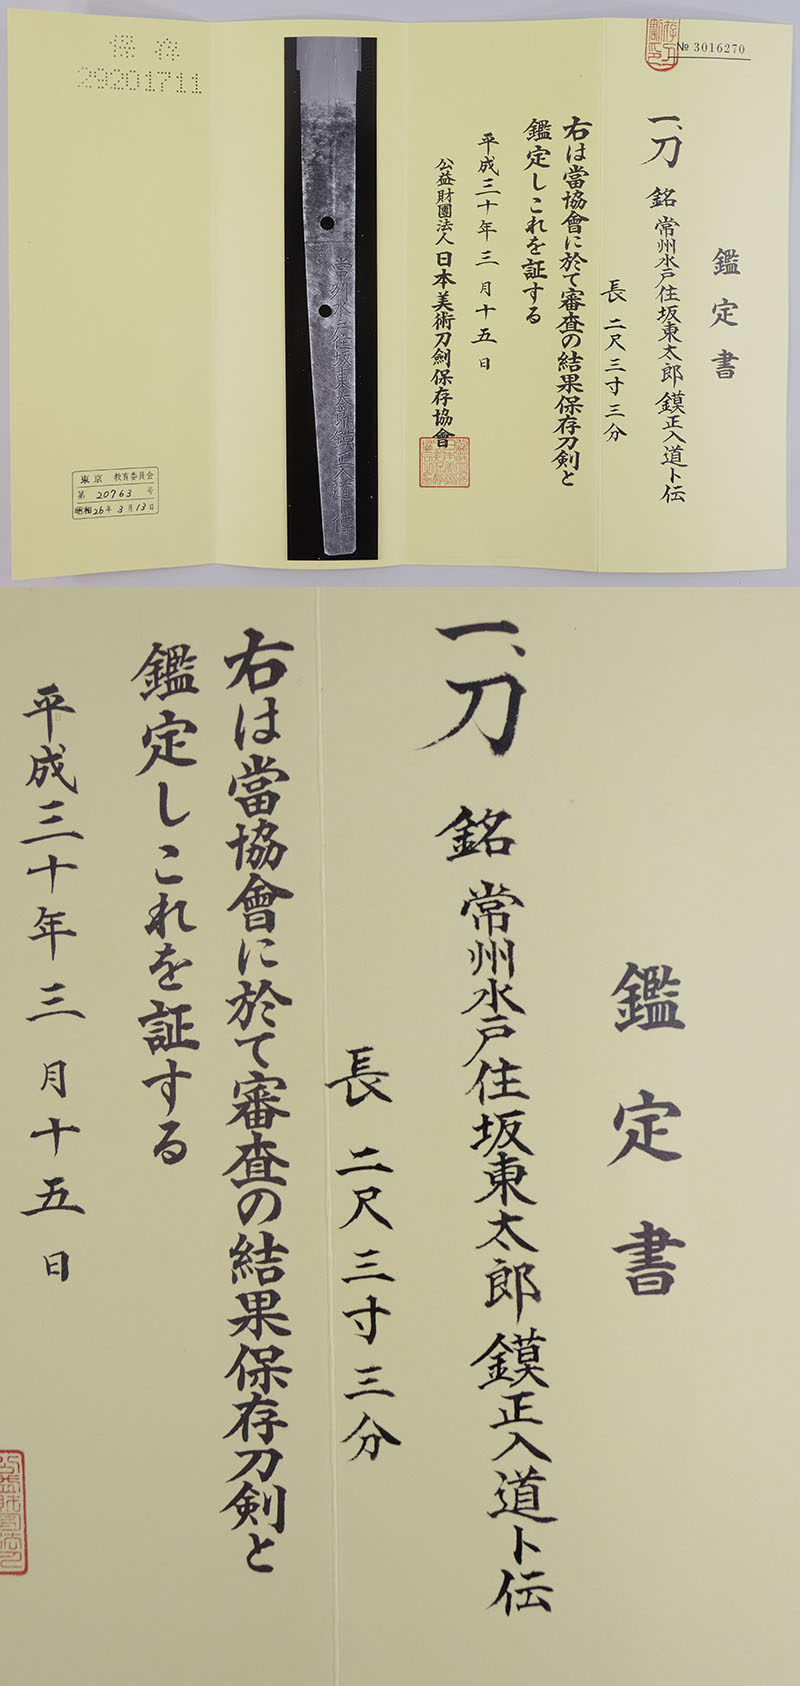 № 3016270
鑑定書
一、刀 銘 常州水戸住坂東太郎鏌正入道卜伝
長 二尺三寸三分
右は當協會に於て審査の結果保存刀剣と
鑑定しこれを証する
平成三十年三月十五日
公益財團法人日本美術刀劍保存協會
常州水戸住坂東太郎鏌正入道卜傳
保存
29201711
東京 教育委員会
第 20763 号
昭和26年3月13日
鑑定書
一、刀 銘 常州水戸住坂東太郎鏌正入道卜伝
長 二尺三寸三分
右は當協會に於て審査の結果保存刀剣と
鑑定しこれを証する
平成三十年三月十五日